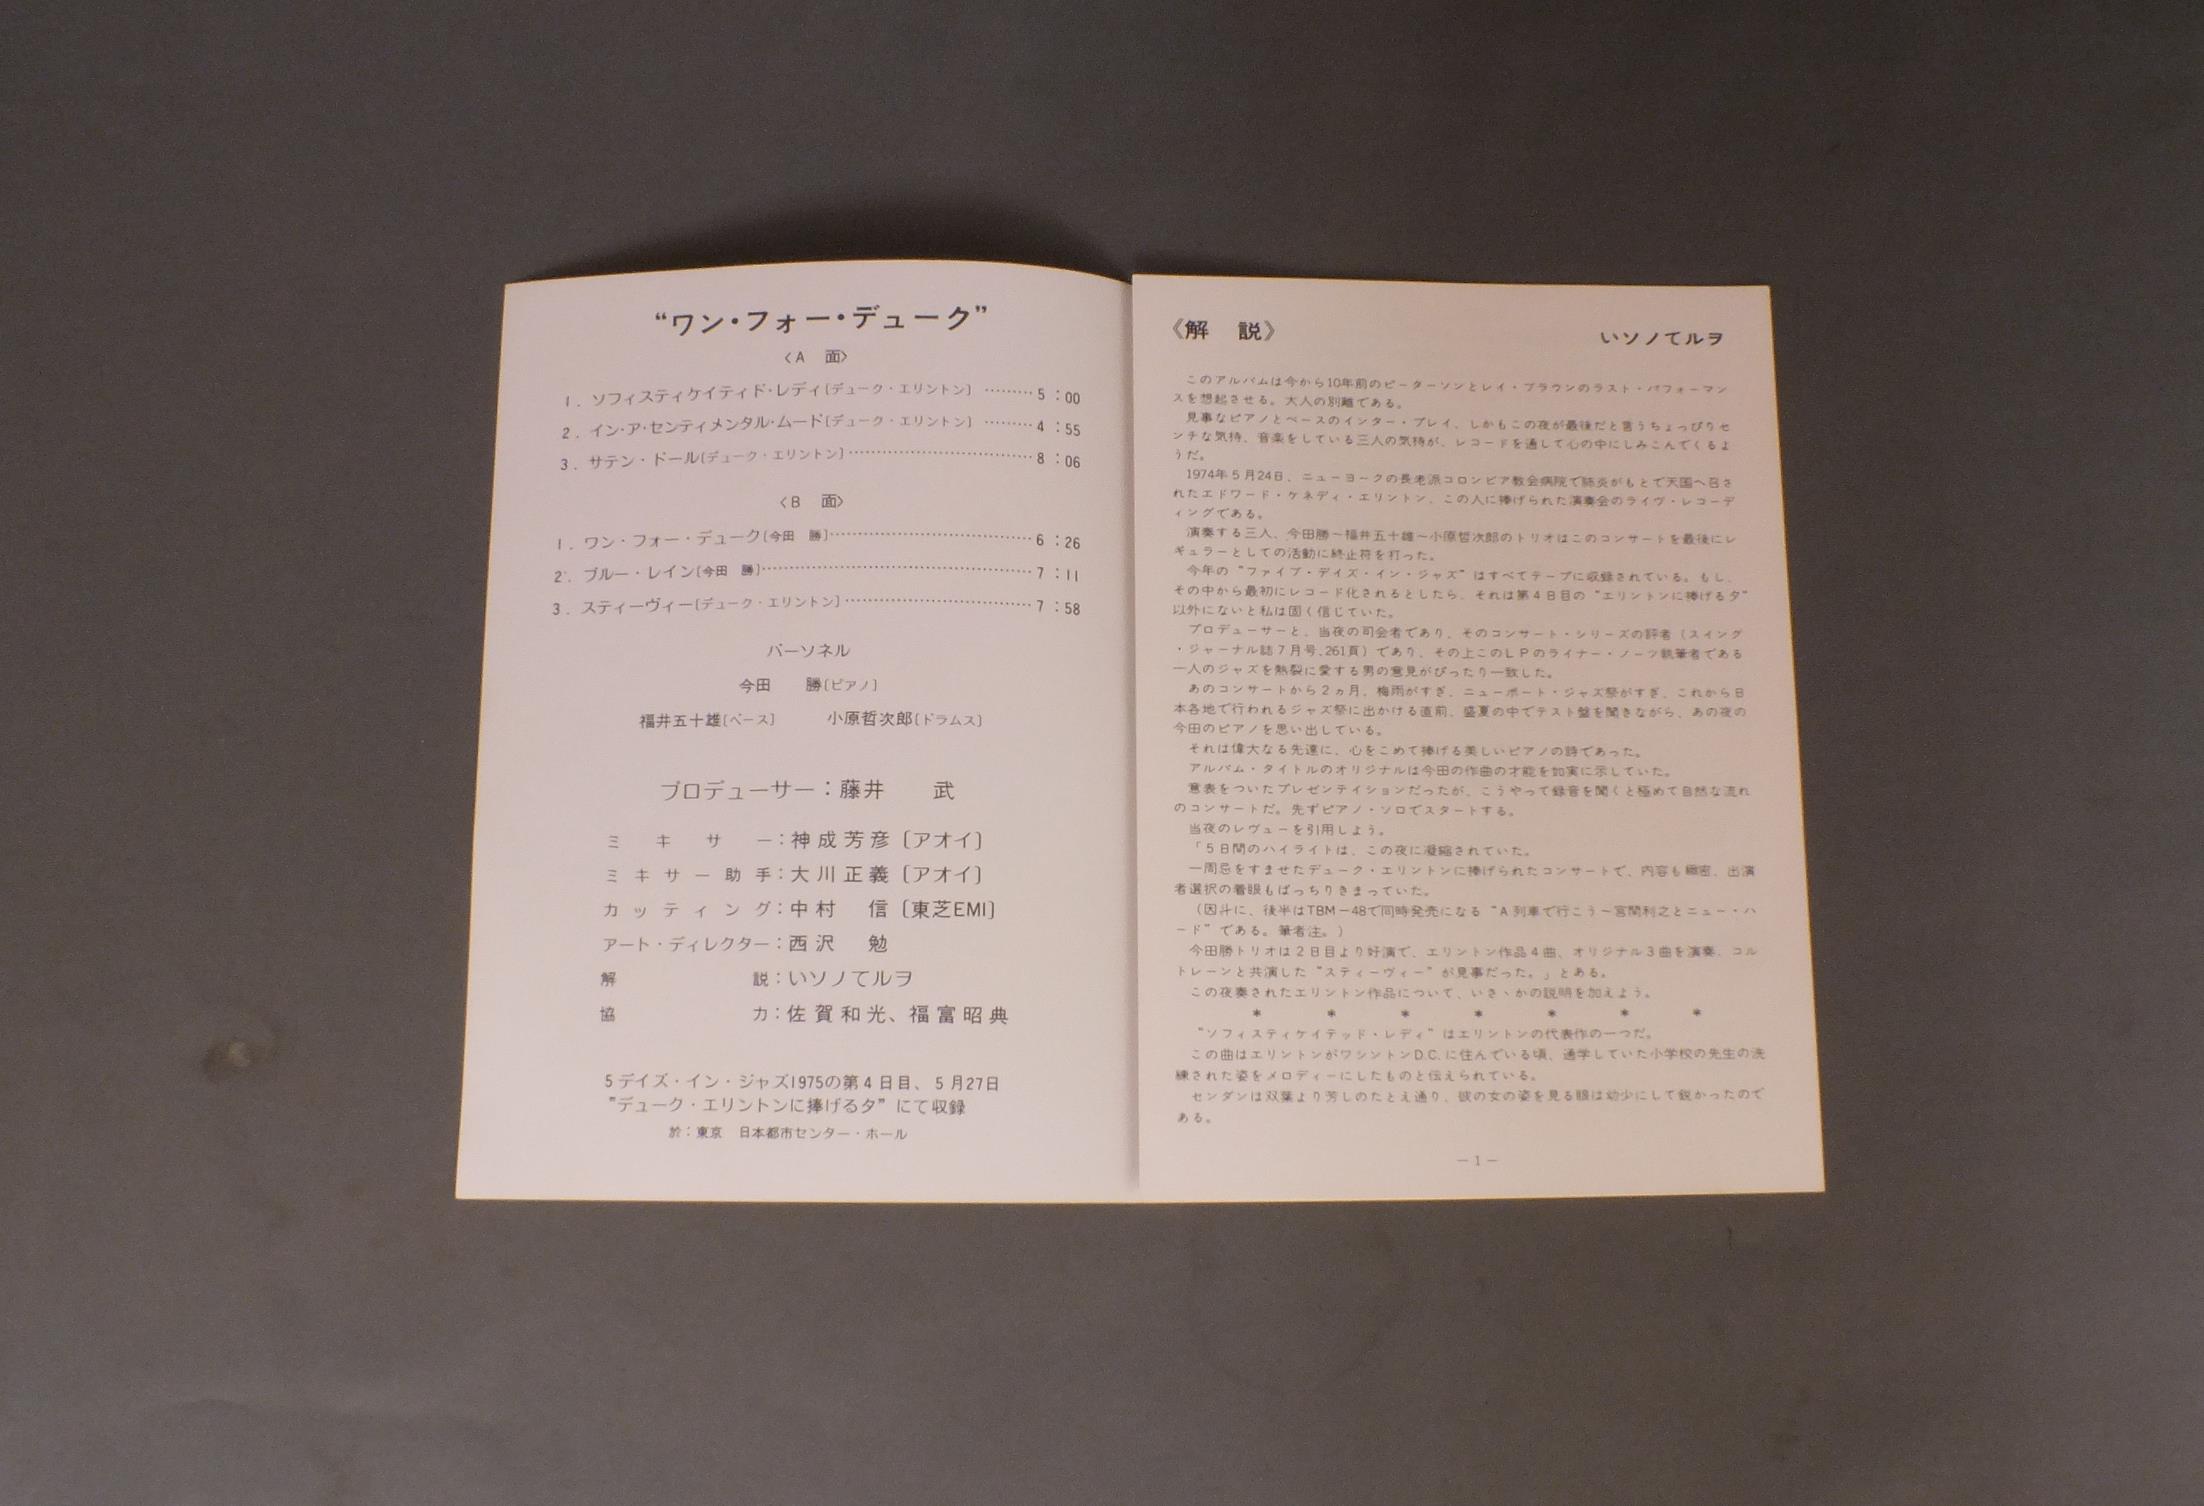 “ワン・フォー・デューク”
〈A　面〉
1．ソフィスティケイティド・レディ〔デューク・エリントン〕………5：00
2．イン・ア・センティメンタル・ムード〔デューク・エリントン〕………4：55
3．サテン・ドール〔デューク・エリントン〕………………………8：06
〈B　面〉
1．ワン・フォー・デューク〔今田　勝〕………………………6：26
2．ブルー・レイン〔今田　勝〕………………………………7：11
3．スティーヴィー〔デューク・エリントン〕………………………7：58
パーソネル
今田　　勝〔ピアノ〕
福井五十雄〔ベース〕　　小原哲次郎〔ドラムス〕
プロデューサー：藤井　　武
ミキサー：神成芳彦〔アオイ〕
ミキサー助手：大川正義〔アオイ〕
カッティング：中村　信〔東芝EMI〕
アート・ディレクター：西沢　勉
解説：いソノてルヲ
協力：佐賀和光、福富昭典
5デイズ・イン・ジャズ1975の第4日目、5月27日
”デューク・エリントンに捧げる夕”にて収録
於：東京　日本都市センター・ホール
《解　説》
いソノてルヲ
このアルバムは今から10年前のピーターソンとレイ・ブラウンのラスト・パフォーマン
スを想起させる。大人の別離である。
見事なピアノとベースのインター・プレイ、しかもこの夜が最後だと言うちょっぴりセ
ンチな気持、音楽をしている三人の気持が、レコードを通して心の中にしみこんでくるよ
うだ。
1974年5月24日、ニューヨークの長老派コロンビア教会病院で肺炎がもとで天国へ召さ
れたエドワード・ケネディ・エリントン、この人に捧げられた演奏会のライヴ・レコーデ
ィングである。
演奏する三人、今田勝〜福井五十雄〜小原哲次郎のトリオはこのコンサートを最後にレ
ギュラーとしての活動に終止符を打った。
今年の“ファイブ・デイズ・イン・ジャズ”はすべてテープに収録されている。もし、
その中から最初にレコード化されるとしたら、それは第4日目の“エリントンに捧げる夕”
以外にないと私は固く信じていた。
プロデューサーと、当夜の司会者であり、そのコンサート・シリーズの評者（スイング
・ジャーナル誌7月号、261頁）であり、その上このLPのライナー・ノーツ執筆者である
一人のジャズを熱裂に愛する男の意見がぴったり一致した。
あのコンサートから2ヵ月、梅雨がすぎ、ニューポート・ジャズ祭がすぎ、これから日
本各地で行われるジャズ祭に出かける直前、盛夏の中でテスト盤を聞きながら、あの夜の
今田のピアノを思い出している。
それは偉大なる先達に、心をこめて捧げる美しいピアノの詩であった。
アルバム・タイトルのオリジナルは今田の作曲の才能を如実に示していた。
意表をついたプレゼンテイションだったが、こうやって録音を聞くと極めて自然な流れ
のコンサートだ。先ずピアノ・ソロでスタートする。
当夜のレヴューを引用しよう。
「5日間のハイライトは、この夜に凝縮されていた。
一周忌をすませたデューク・エリントンに捧げられたコンサートで、内容も緻密、出演
者選択の着眼もばっちりきまっていた。
（因斗に、後半はTBM－48で同時発売になる“A列車で行こう〜宮間利之とニュー・ハ
ード”である。筆者注。）
今田勝トリオは2日目より好演で、エリントン作品4曲、オリジナル3曲を演奏、コル
トレーンと共演した“スティーヴィー”が見事だった。」とある。
この夜奏されたエリントン作品について、いさゝかの説明を加えよう。
＊　＊　＊　＊　＊　＊　＊
“ソフィスティケイテッド・レディ”はエリントンの代表作の一つだ。
この曲はエリントンがワシントンD.C.に住んでいる頃、通学していた小学校の先生の洗
練された姿をメロディーにしたものと伝えられている。
センダンは双葉より芳しのたとえ通り、彼の女の姿を見る眼は幼少にして鋭かったので
ある。
－1－